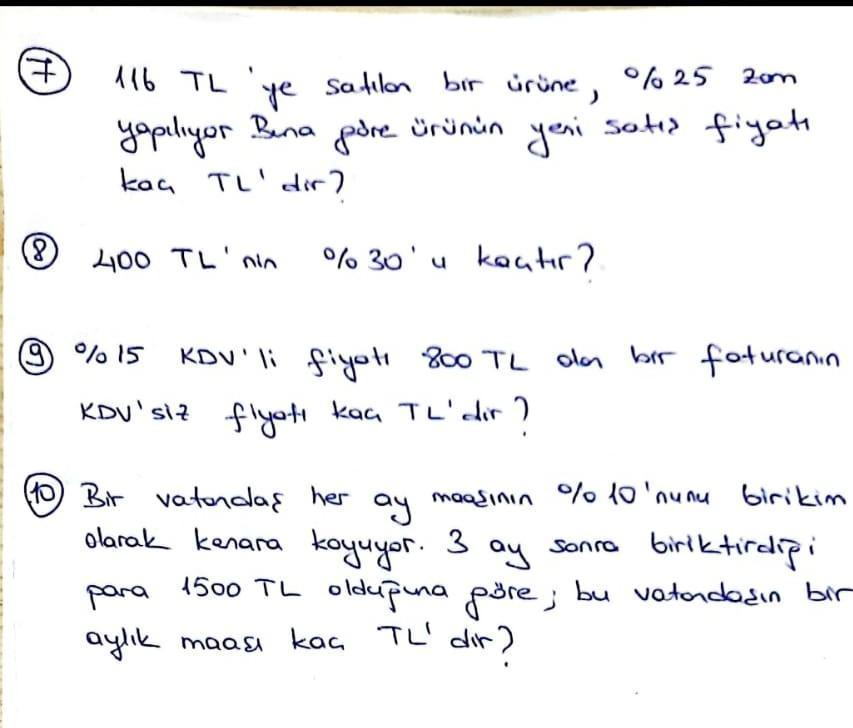 7 116 TL'ye satılan bir ürüne, %25 zam
yapılıyor Buna göre ürünün yeni satış fiyatı
kaç TL'dir?
8 400 TL'nin %30'u kaçtır?
9 %15 KDV'li fiyatı 800 TL olan bir faturanın
KDV'siz fiyatı kaç TL'dir?
10 Bir vatandaş her ay maaşının %10'nunu birikim
olarak kenara koyuyor. 3 ay sonra biriktirdiği
para 1500 TL olduğuna göre; bu vatandaşın bir
aylık maaşı kaç TL'dir?